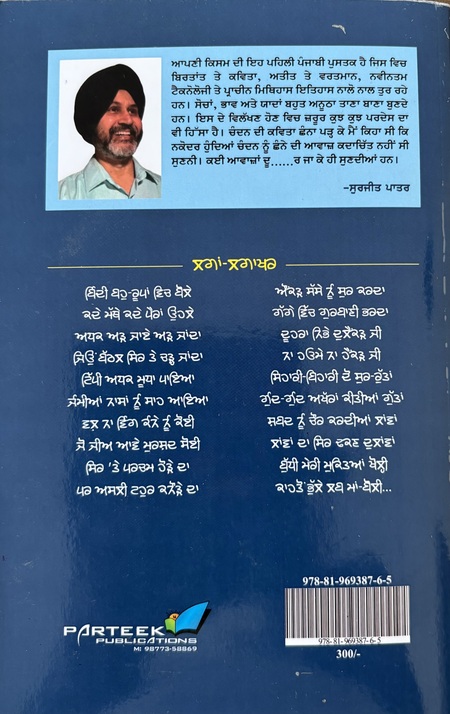 ਆਪਣੀ ਕਿਸਮ ਦੀ ਇਹ ਪਹਿਲੀ ਪੰਜਾਬੀ ਪੁਸਤਕ ਹੈ ਜਿਸ ਵਿਚ
ਬਿਰਤਾਂਤ ਤੇ ਕਵਿਤਾ, ਅਤੀਤ ਤੇ ਵਰਤਮਾਨ, ਨਵੀਨਤਮ
ਟੈਕਨੋਲੋਜੀ ਤੇ ਪ੍ਰਾਚੀਨ ਮਿਥਿਹਾਸ ਇਤਿਹਾਸ ਨਾਲੋ ਨਾਲ ਤੁਰ ਰਹੇ
ਹਨ। ਸੋਚਾਂ, ਭਾਵ ਅਤੇ ਯਾਦਾਂ ਬਹੁਤ ਅਨੂਠਾ ਤਾਣਾ ਬਾਣਾ ਬੁਣਦੇ
ਹਨ। ਇਸ ਦੇ ਵਿਲੱਖਣ ਹੋਣ ਵਿਚ ਜ਼ਰੂਰ ਕੁਝ ਕੁਝ ਪਰਦੇਸ ਦਾ
ਵੀ ਹਿੱਸਾ ਹੈ। ਚੰਦਨ ਦੀ ਕਵਿਤਾ ਛੰਨਾ ਪੜ੍ਹ ਕੇ ਮੈਂ ਕਿਹਾ ਸੀ ਕਿ
ਨਕੋਦਰ ਹੁੰਦਿਆਂ ਚੰਦਨ ਨੂੰ ਛੰਨੇ ਦੀ ਆਵਾਜ਼ ਕਦਾਚਿੱਤ ਨਹੀਂ ਸੀ
ਸੁਣਨੀ। ਕਈ ਆਵਾਜ਼ਾਂ ਦੂ......ਰ ਜਾ ਕੇ ਹੀ ਸੁਣਦੀਆਂ ਹਨ।
–ਸੁਰਜੀਤ ਪਾਤਰ
ਲਗਾਂ-ਲਗਾਖਰ
ਬਿੰਦੀ ਬਹੁ-ਰੂਪਾਂ ਵਿੱਚ ਬੋਲੇ
ਕਦੇ ਮੱਥੇ ਕਦੇ ਪੈਰਾਂ ਓਹਲੇ
ਅਧਕ ਅੜ ਜਾਏ ਅੜ ਜਾਂਦਾ
ਜਿਓਂ ਬੱਦਲ ਸਿਰ ਤੇ ਚੜ੍ਹ ਜਾਂਦਾ
ਟਿੱਪੀ ਅਧਕ ਮੂਧਾ ਪਾਇਆ
ਵਲ ਨਾ ਵਿੰਗ ਕੰਨੇ ਨੂੰ ਕੋਈ
ਜੋ ਜੀਅ ਆਏ ਮੁਰਸ਼ਦ ਸੋਈ
ਸਿਰ 'ਤੇ ਪਰਚਮ ਹੋੜੇ ਦਾ
ਪਰ ਅਸਲੀ ਟਹੁਰ ਕਨੌੜੇ ਦਾ
ਔਂਕੜ ਸੱਸੇ ਨੂੰ ਸੁਰ ਕਰਦਾ
ਗੱਗੇ ਵਿੱਚ ਗੁਰਬਾਣੀ ਭਰਦਾ
ਦੂਹਰਾ ਨਿਭੇ ਦੁਲੈਂਕੜ ਜੀ
ਨਾ ਹਓਮੈ ਨਾ ਹੈਂਕੜ ਜੀ
ਸਿਹਾਰੀ-ਬਿਹਾਰੀ ਦੋ ਸੁਰ-ਰੁੱਤਾਂ
ਗੁੰਦ-ਗੁੰਦ ਅੱਖਰਾਂ ਕੀਤੀਆਂ ਗੁੱਤਾਂ
ਸ਼ਬਦ ਨੂੰ ਚੌਰ ਕਰਦੀਆਂ ਲਾਂਵਾਂ
ਲਾਂਵਾਂ ਦਾ ਸਿਰ ਢਕਣ ਦੁਲਾਵਾਂ
ਬੁੱਧੀ ਮੇਰੀ ਮੁਕਤਿਆਂ ਖੋਲ੍ਹੀ
ਕਾਹਤੋਂ ਭੁੱਲੇ ਲਬ ਮਾਂ-ਬੋਲੀ...
PARTEEK
PUBLICATIONS
M: 98773-58869
978-81-969387-6-5
978-81-969387-6-5
300/-